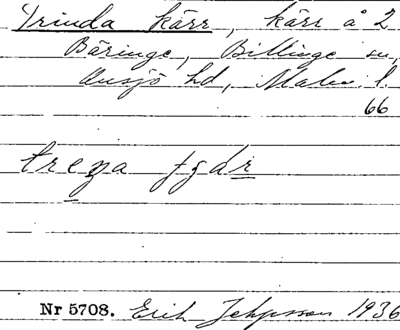 Trinda kärr, kärr å 2
Bäringe, Billinge sn,
Onsjö hd, Malm. l.
66
Nr 5708. Erik Jeppsson 1936